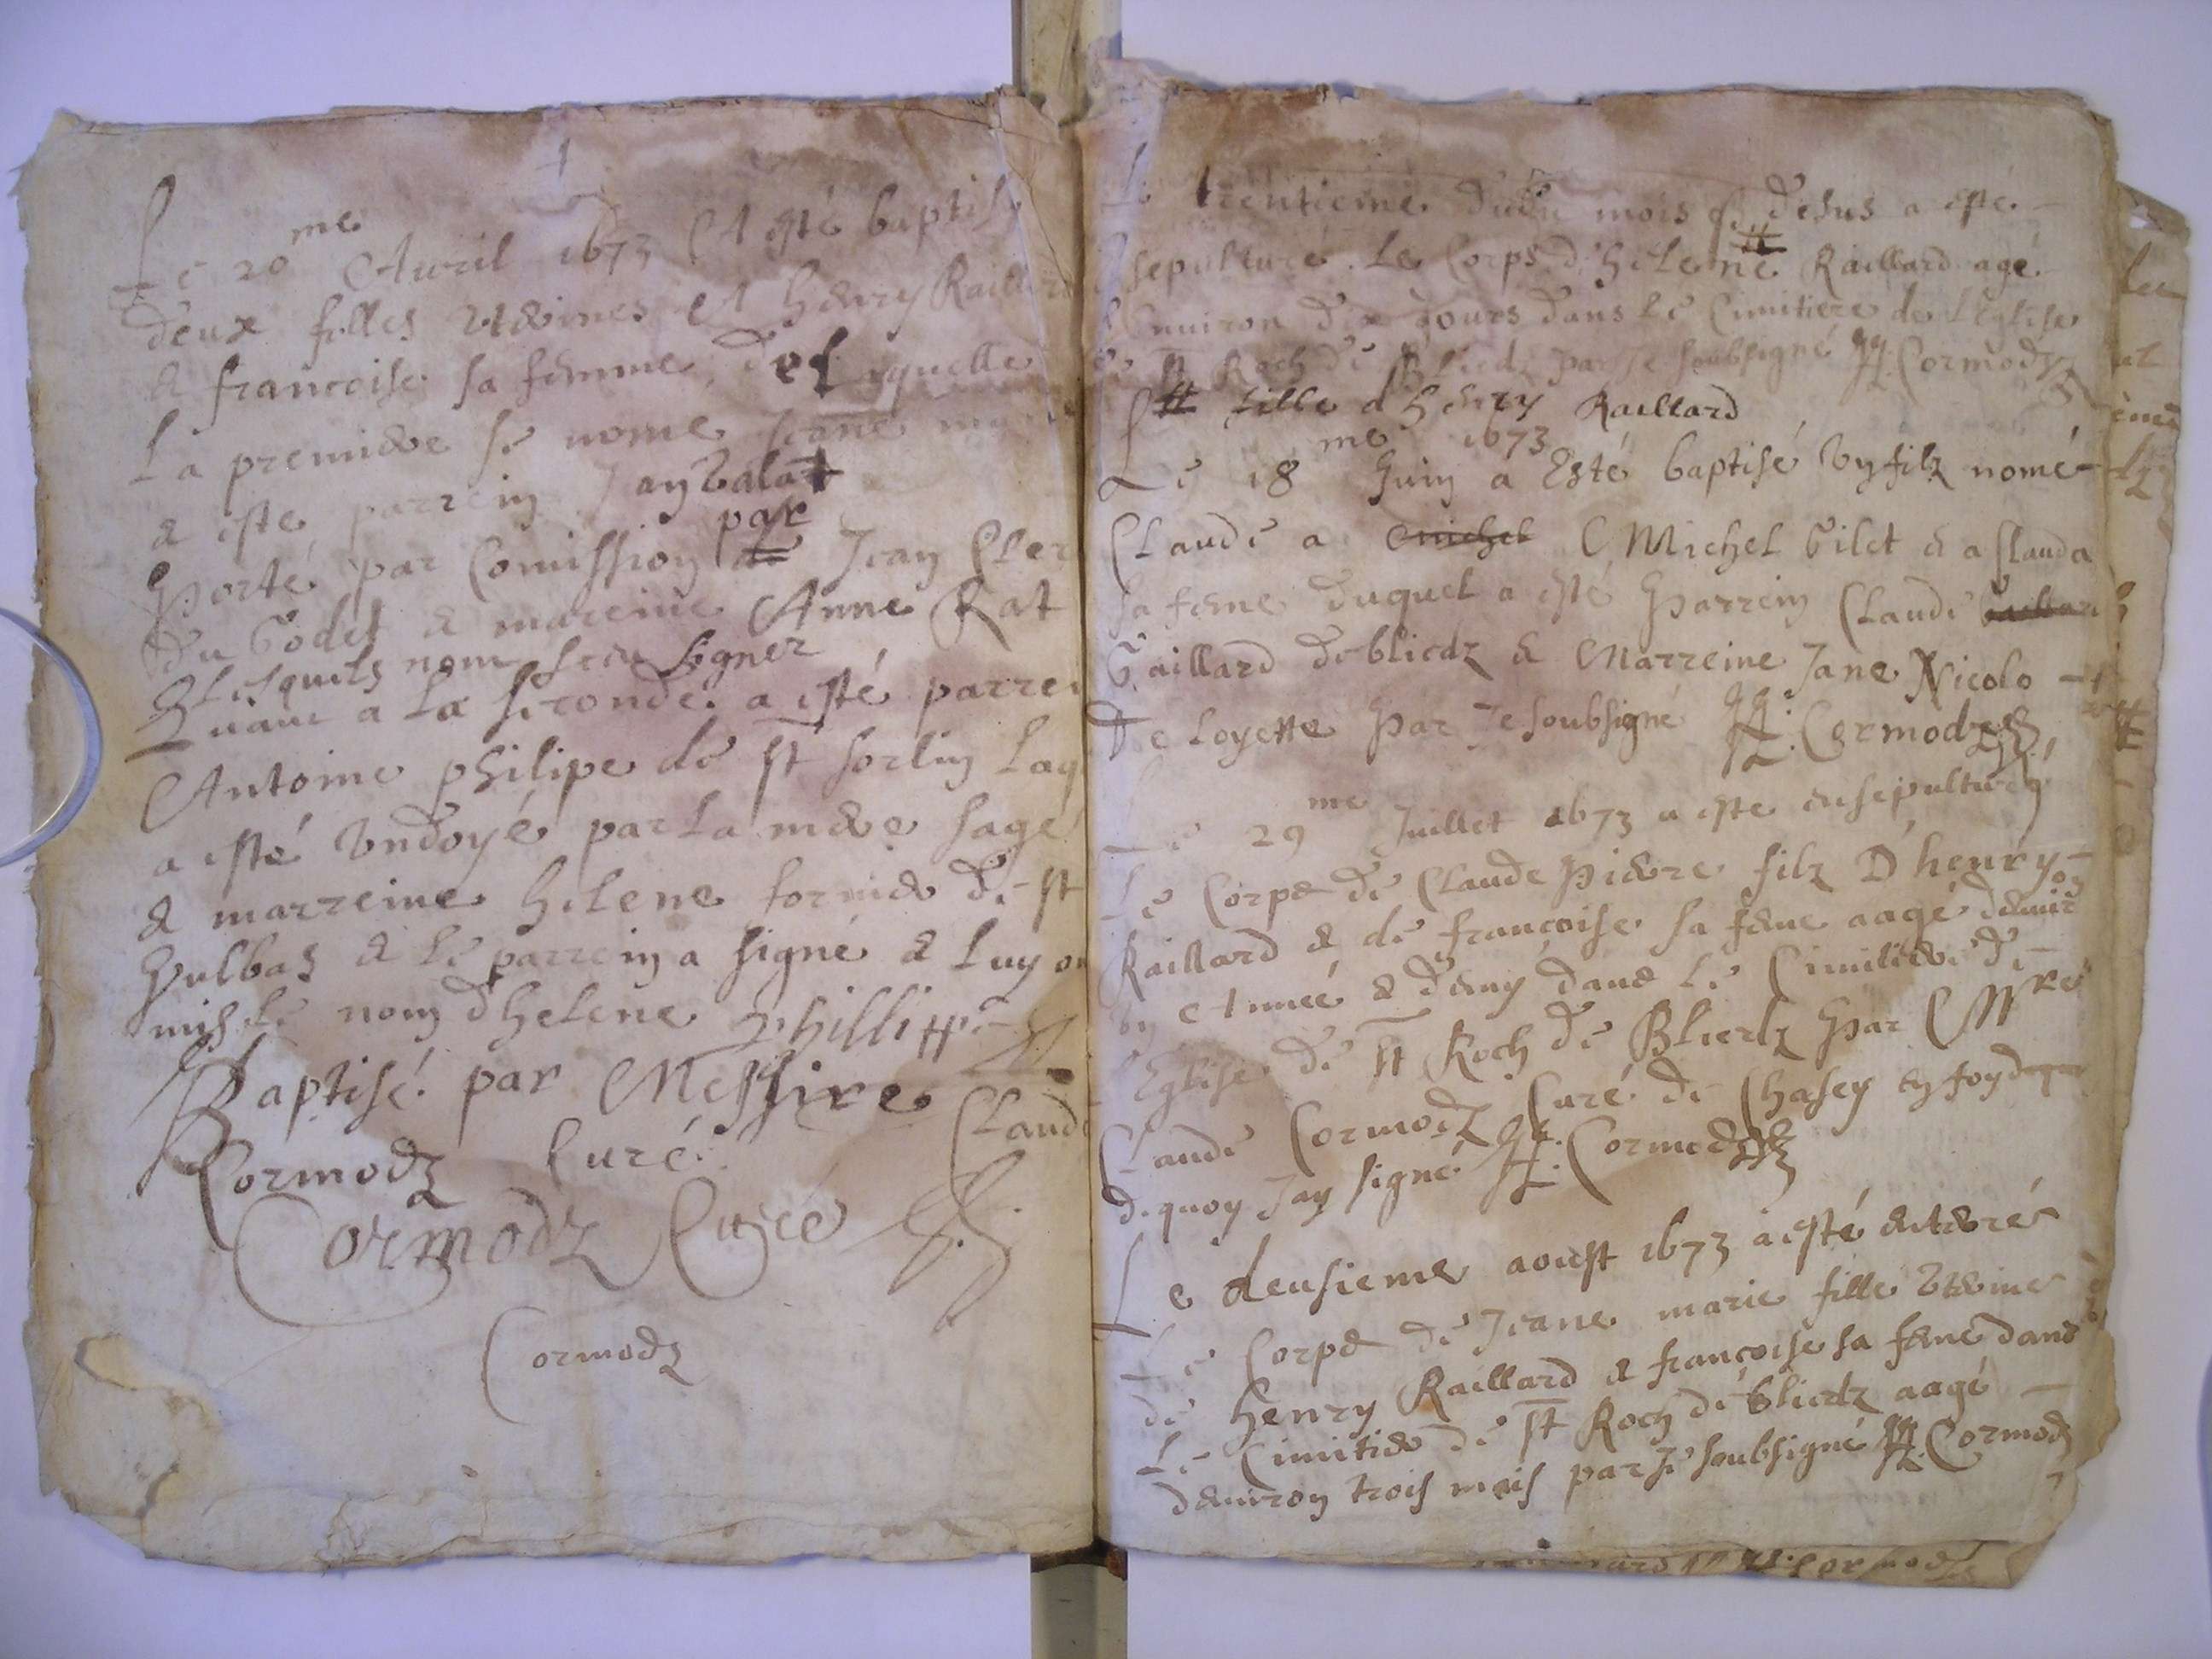 Le 20me Avril 1673 A esté baptisé
deux filles uterines A henry Raillard
& francoise sa femme, desquelle
La premiere se nome Jeane
a este parrein Jan
Porté par Comission par Jean Cler
du Godet & mareine Anne Rat
Lesquels nom sceu signer
Quant a La seconde a esté parrein
Antoine philipe de st sorlin Laq
a esté Undoyé par La mere sage
& marreine helene fornier de st
Vulbas & le parrein a signé & Luy on
mis le nom dhelene Phillippe
Baptisé par Messire Claude
Cormodz Curé
Cormodz Curé
Cormodz
Le trentieme dudu mois desus a esté
sepulturé Le Corps dhelene Raillard agé
denviron dix Jours dans le Cimitiere de L'Eglise
de st Roch de Bliedz par Je soubsigné Cormodz
fille d henry Raillard
Le 18me Juin 1673 a Esté baptisé un filz nomé
Claude a michel Michel Gilet & a Clauda
sa feme duquel a esté Parrein Claude
Gaillard de bliedz & Marreine Jane Nicolo
De Loyette Par Je soubsigné Cormodz
Le 29me Juillet 1673 a este ensepulturé
Le Corps de Claude Pierre filz D'henry
Raillard & de francoise sa feme aagé denviron
un année & demy dans Le Cimitiere de
L'Eglise de st Roch de Bliedz Par Mre
Claude Cormodz Curé de Chasey en foy
de quoy Jay signé Cormodz
Le deusieme aoust 1673 a esté enterré
Le Corps de Jeane marie fille uterine
de henry Raillard & francoise sa feme dans
Le Cimitier de st Roch de bliedz aagé
denviron trois mois par Je soubsigné Cormodz